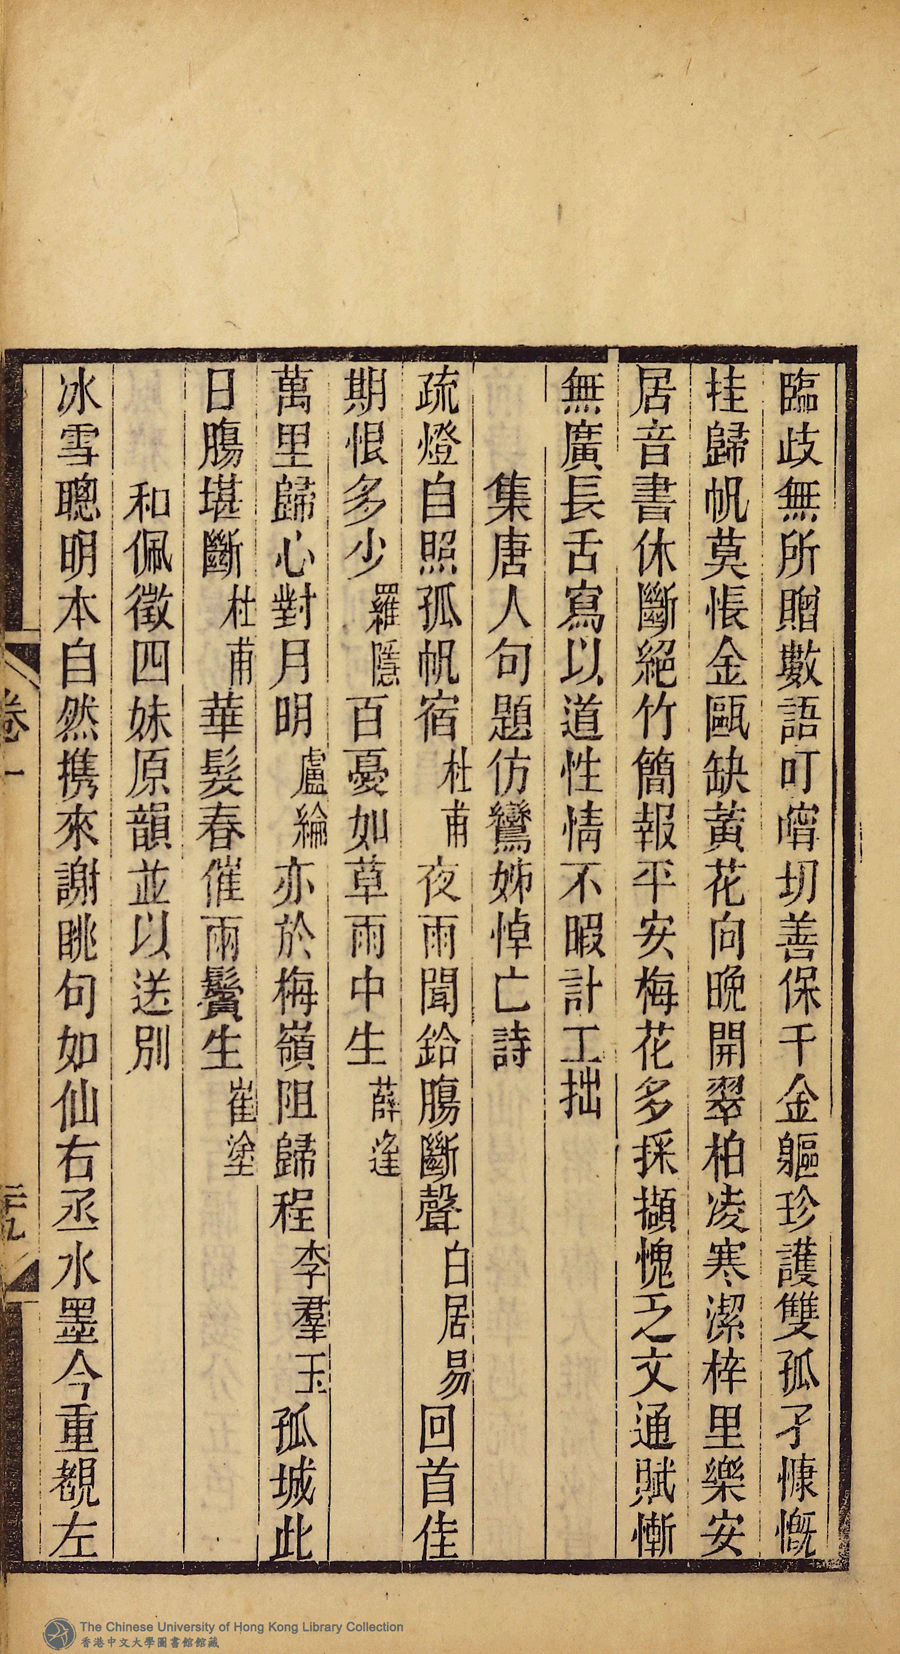 臨歧無所贈數語叮嚀切善保千金軀珍護雙孤孑慷慨
挂歸帆莫悵金甌缺黃花向晚開翠柏凌寒潔梓里樂安
居音書休斷絕竹簡報平安梅花多採擷愧乏文通賦慚
無廣長舌寫以道性情不暇計工拙
集唐人句題仿鸞姊悼亡詩
疏燈自照孤帆宿杜甫夜雨聞鈴腸斷聲白居易回首佳
期恨多少羅隱百憂如草雨中生薛逢
萬里歸心對月明盧綸亦於梅嶺阻歸程李羣玉孤城此
日腸堪斷杜甫華髮春催兩鬢生崔塗
和佩徵四妹原韻並以送別
冰雪聰明本自然携來謝眺句如仙右丞水墨今重覩左
卷一
The Chinese University of Hong Kong Library Collection
香港中文大學圖書館館藏